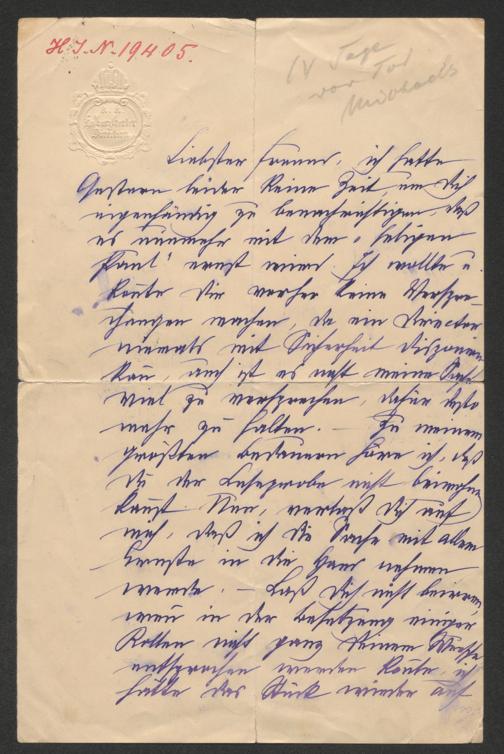 H.I.N.-19405.
IV Tage
vor Tod
Michaels
Liebster Freund, ich hatte
Gestern leider keine Zeit, um Dich
eigenhändig zu benachrichtigen, daß
es nunmehr mit dem „seligen
Paul“ ernst wird. Ich wollte u.
konnte Dir vorher keine Verspre-
chungen machen, da ein Director
niemals mit Sicherheit disponiren
kann, auch ist es nicht meine Sache
viel zu versprechen, dafür desto
mehr zu halten. — Zu meinem
größten Bedauern höre ich, daß
Du der Leseprobe nicht beiwohnen
kannst. Nun, verlaß Dich auf
mich, daß ich die Sache mit allem
Ernste in die Hand nehmen
werde. — Laß Dich nicht beirren,
wenn in der Besetzung einiger
Rollen nicht ganz Deinem Wunsche
entsprochen werden konnte, ich
hätte das Stück wieder auf